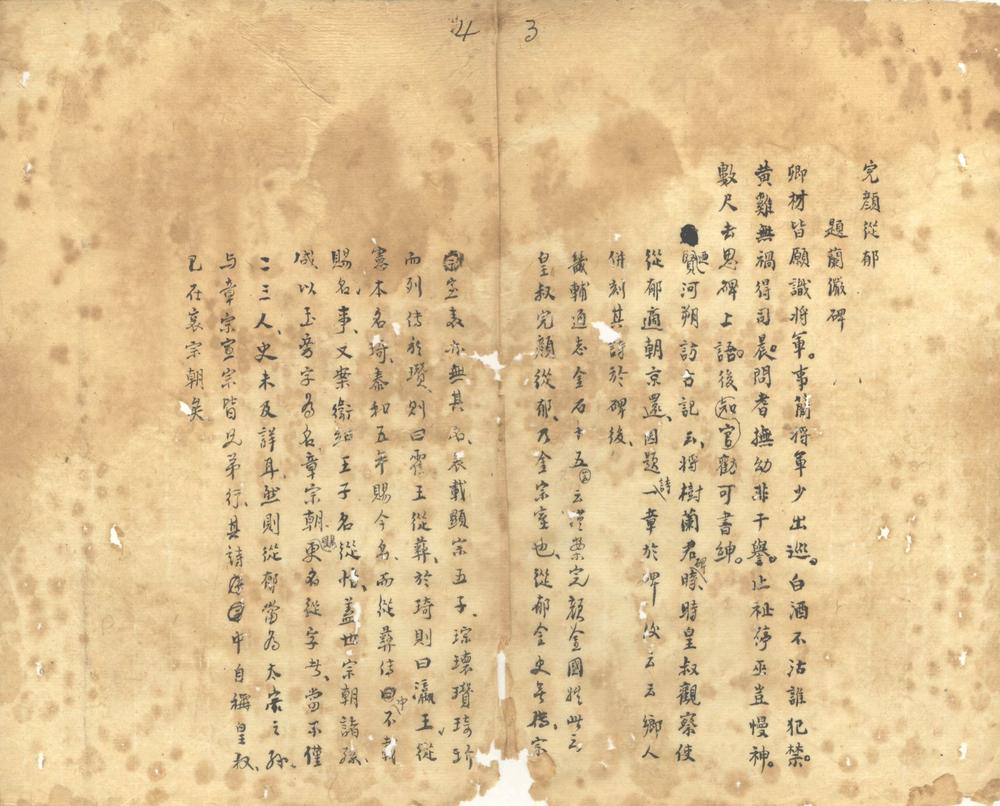 4
3
完顏從郁
題藺徹碑
卿材皆願識將軍。事藺將軍少出巡。白酒不沽誰犯禁。
黃雞無禍得司晨。問耆撫幼非干譽。止祉停巫豈慢神。
數尺去思碑上語。後知官勸可書紳。
河朔訪古記云、將樹藺君碑時、時皇叔觀察使
從郁適朝京還、因題詩一章於碑後云云鄉人
併刻其詩於碑後、
畿輔通志金石十五云 完顏金國姓此云
皇叔完顏從郁、乃金宗室也、從郁金史無傳、宗
室表亦無其名、表載顯宗五子、琮瓌瓚琦玠
而列傳於瓚、則曰霍王從彝、於琦則曰瀛王從
憲本名琦、泰和五年賜今名、而從彝傳中不載
賜名事、又案衛紹王子名從恪、蓋世宗朝諸孫、
咸以玉旁字為名、章宗朝更名從字者、當不僅
二三人、史未及詳耳、然則從郁當為太宗之孫、
与章宗宣宗皆兄弟行、其詩中自稱皇叔、
已在哀宗朝矣